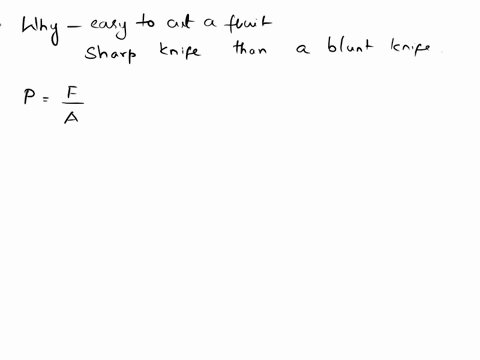 Why – easy to cut a fruit
sharp knife than a blunt knife.
P = F
A